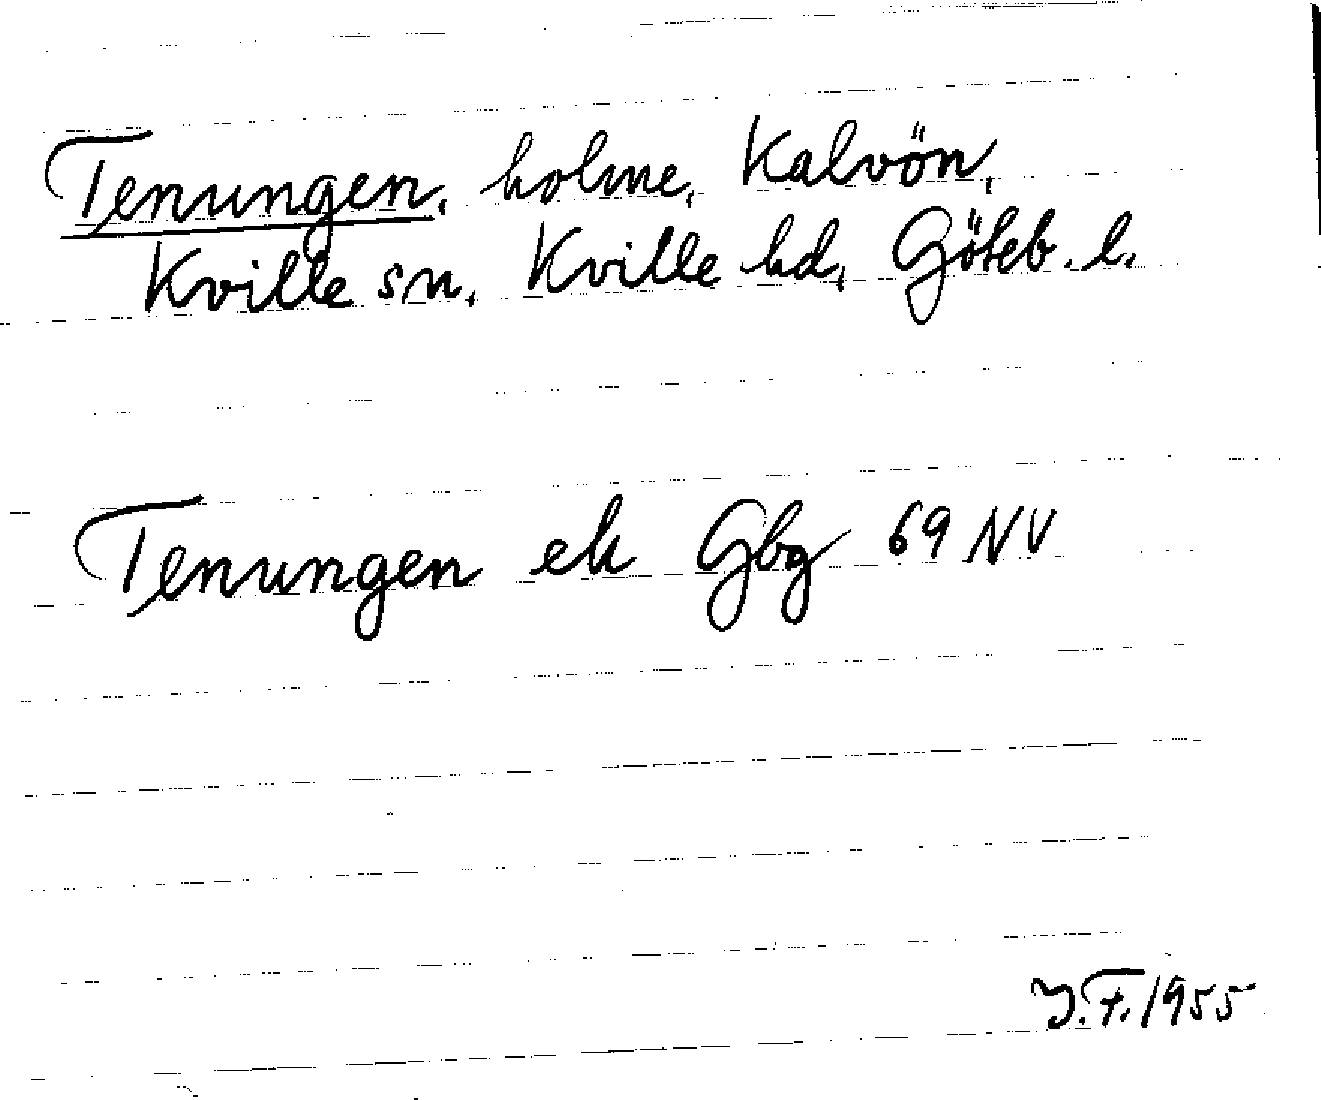 Tenungen, holme, Kalvön,
Kville sn, Kville hd, Göteb. l.
Tenungen ek Gbg 69 NV
J.F. 1955